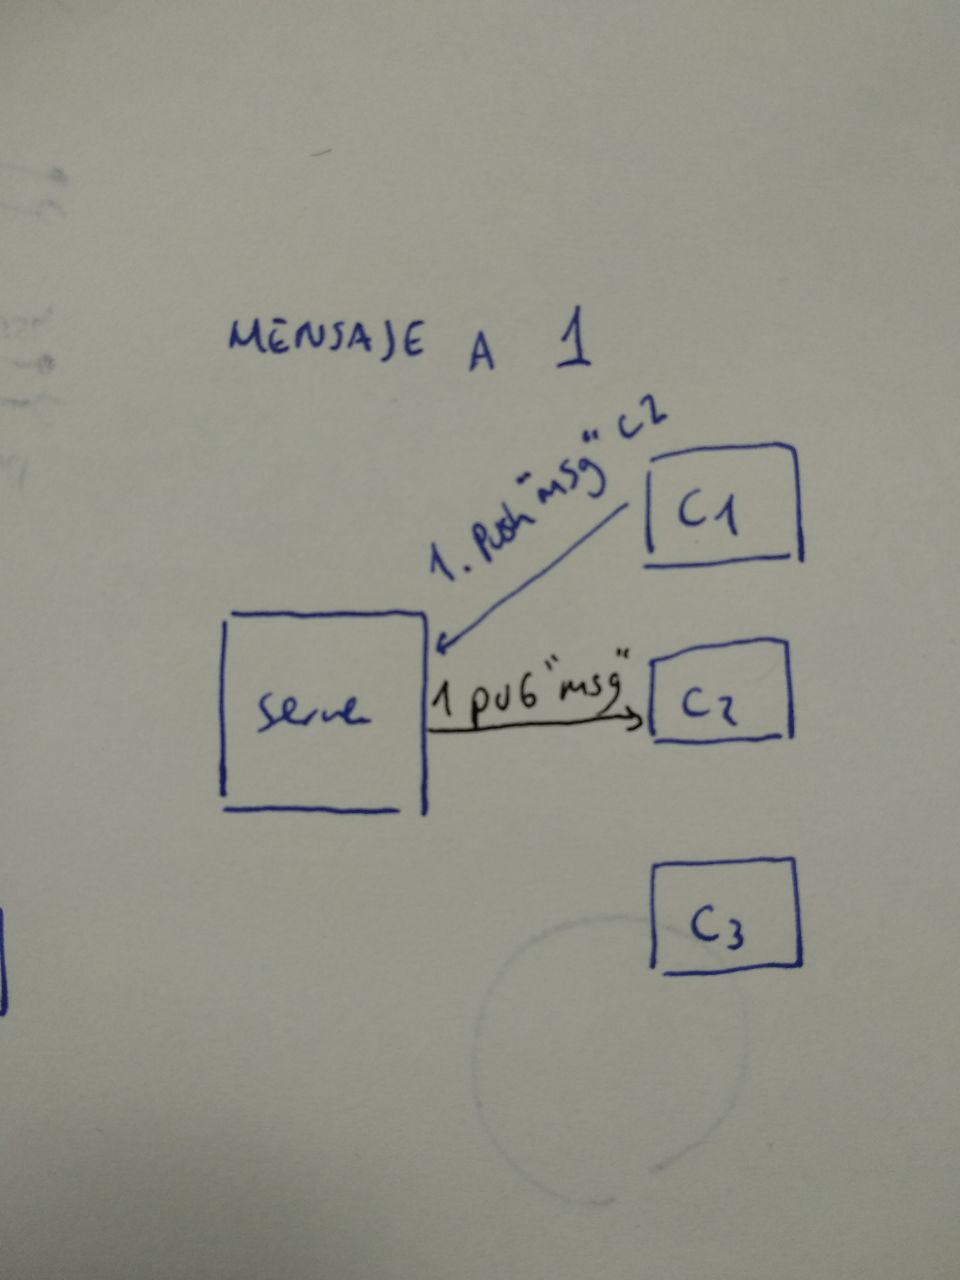 MENSAJE A 1
1. Push "msg" C2
C1
Server
1 pub "msg"
C2
C3